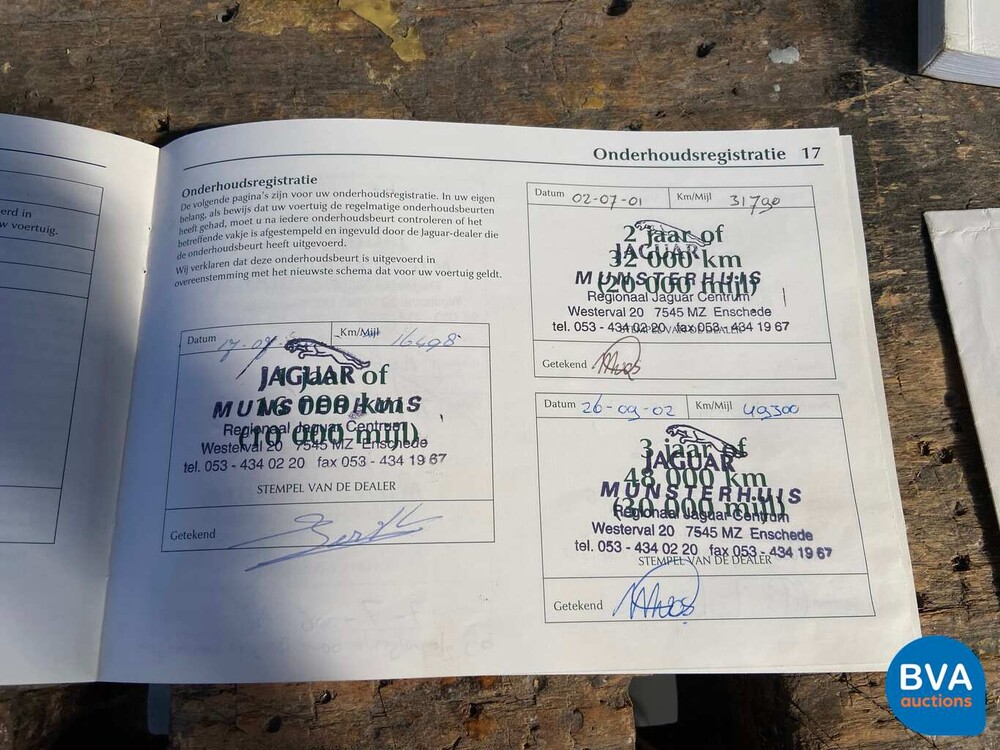 Onderhoudsregistratie 17
erd in
w voertuig.
Onderhoudsregistratie
De volgende pagina's zijn voor uw onderhoudsregistratie. In uw eigen
belang, als bewijs dat uw voertuig de regelmatige onderhoudsbeurten
heeft gehad, moet u na iedere onderhoudsbeurt controleren of het
betreffende vakje is afgestempeld en ingevuld door de Jaguar-dealer die
de onderhoudsbeurt heeft uitgevoerd.
Wij verklaren dat deze onderhoudsbeurt is uitgevoerd in
overeenstemming met het nieuwste schema dat voor uw voertuig geldt.
Datum Km/Mijl 16498
1 jaar of
JAGUAR
16 000 km
MUNSTERHUIS
(10 000 mijl)
Regionaal Jaguar Centrum
Westerval 20 7545 MZ Enschede
tel. 053 - 434 02 20 fax 053 - 434 19 67
STEMPEL VAN DE DEALER
Getekend
Datum 02-07-01 Km/Mijl 31790
2 jaar of
JAGUAR
32 000 km
MUNSTERHUIS
(20 000 mijl)
Regionaal Jaguar Centrum
Westerval 20 7545 MZ Enschede
tel. 053 - 434 02 20 fax 053 - 434 19 67
STEMPEL VAN DE DEALER
Getekend
Datum 26-09-02 Km/Mijl 49300
3 jaar of
JAGUAR
48 000 km
MUNSTERHUIS
(30 000 mijl)
Regionaal Jaguar Centrum
Westerval 20 7545 MZ Enschede
tel. 053 - 434 02 20 fax 053 - 434 19 67
STEMPEL VAN DE DEALER
Getekend
BVA
auctions